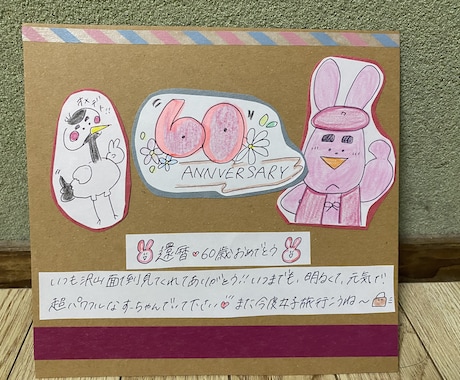 オメデト!!
60
ANNVERSARY
還暦♥60歳おめでとう
いつも沢山面倒見てくれてありがとう!!いつまでも、明るくて、元気で
超パワフルなすーちゃんでいて下さい♥また今度女子旅行こうね〜